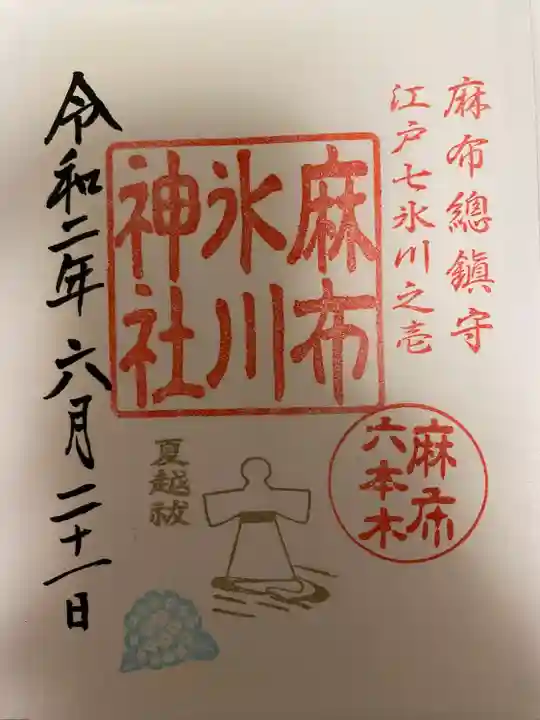 麻布總鎮守
江戸七氷川之壱
麻布
氷川
神社
麻布
六本木
夏越祓
令和二年六月二十一日